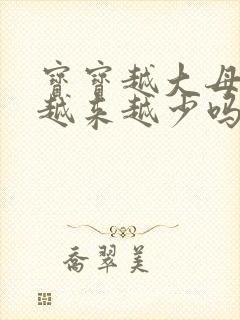 寶寶越大母
越来越少吗
喬翠美